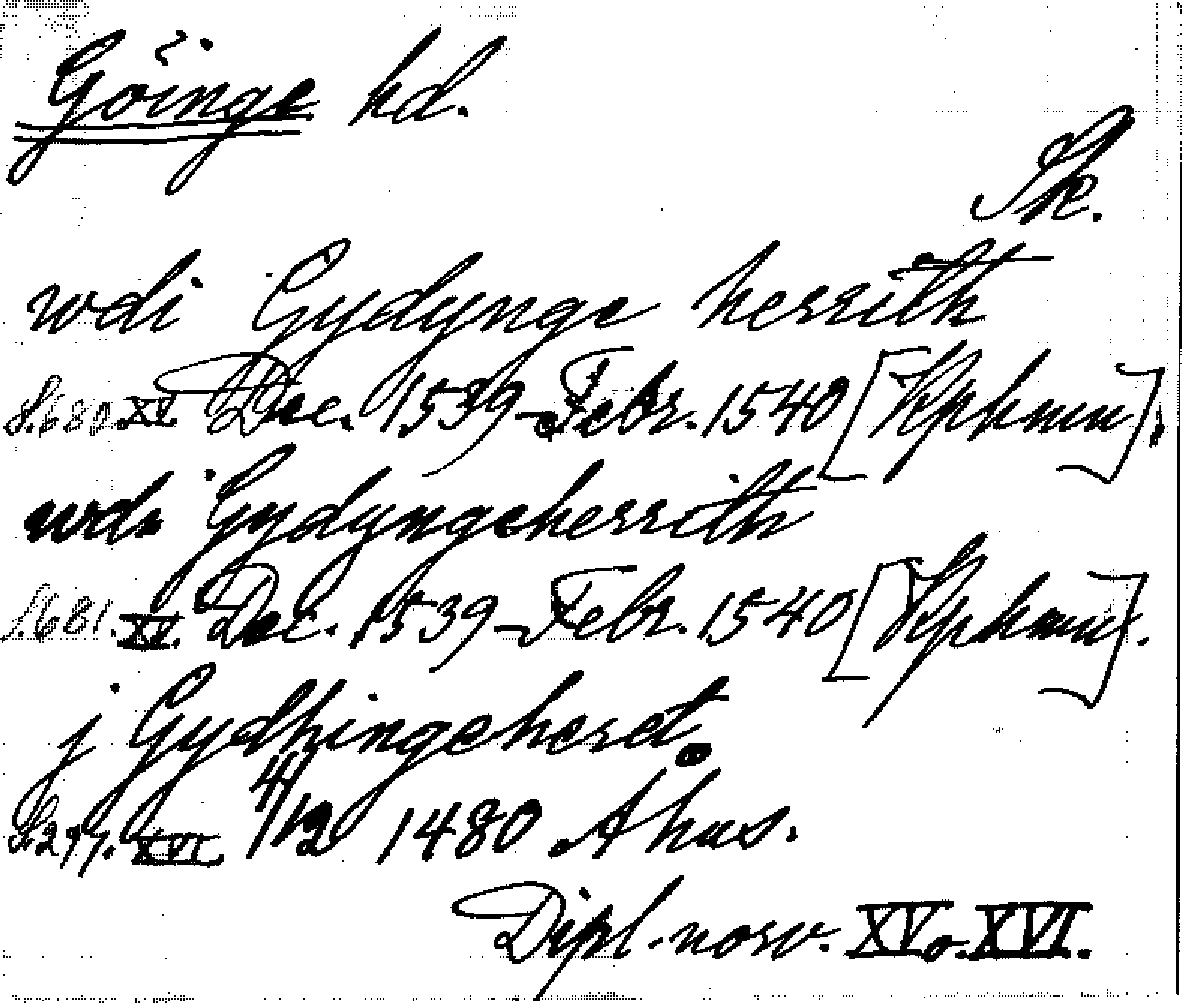 Göinge hd.
Sk.
wdi Gydynge herrith
S. 680. XV. Dec. 1539-Febr. 1540 [Kphmn].
wdi Gydyngeherrith
S. 681. XV. Dec. 1539-Febr. 1540 [Kphmn].
j Gydhingeheret.
S. 297. XVI. 4/12 1480 Ahus.
Dipl. norv. XV o. XVI.